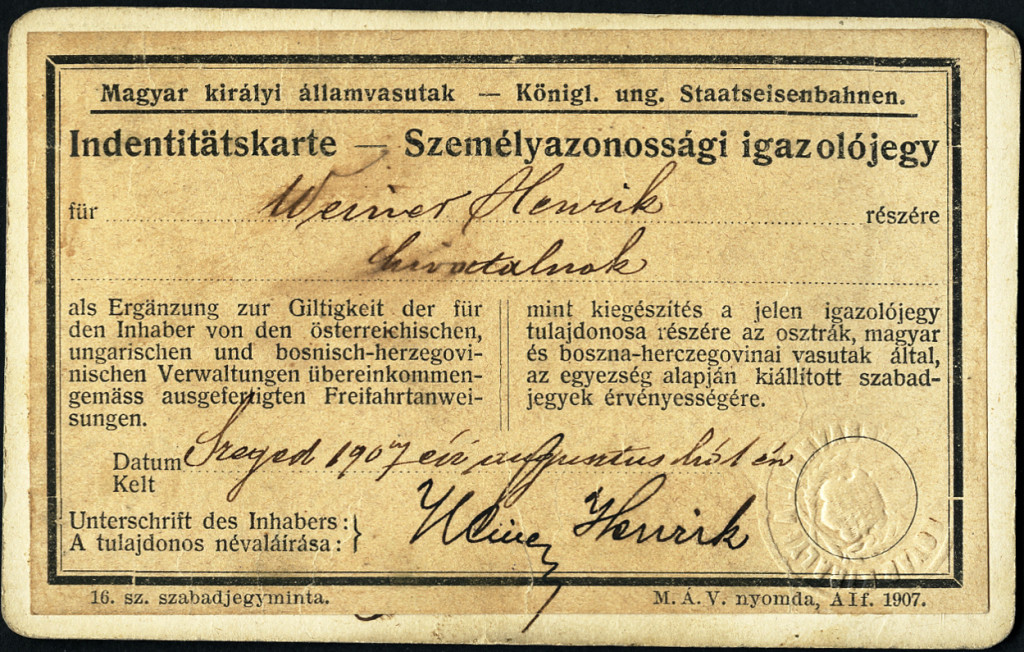 Magyar királyi államvasutak — Königl. ung. Staatseisenbahnen.
Indentitätskarte — Személyazonossági igazolójegy
für Weiner Henrik részére
hivatalnok
als Ergänzung zur Giltigkeit der für
den Inhaber von den österreichischen,
ungarischen und bosnisch-herzegovi-
nischen Verwaltungen übereinkommen-
gemäss ausgefertigten Freifahrtanwei-
sungen.
mint kiegészítés a jelen igazolójegy
tulajdonosa részére az osztrák, magyar
és boszna-herczegovinai vasutak által,
az egyezség alapján kiállított szabad-
jegyek érvényességére.
Datum Szeged 1907 évi augusztus hó
Kelt
Unterschrift des Inhabers: Weiner Henrik
A tulajdonos névaláírása:
16. sz. szabadjegyminta.
M. Á. V. nyomda, A If. 1907.